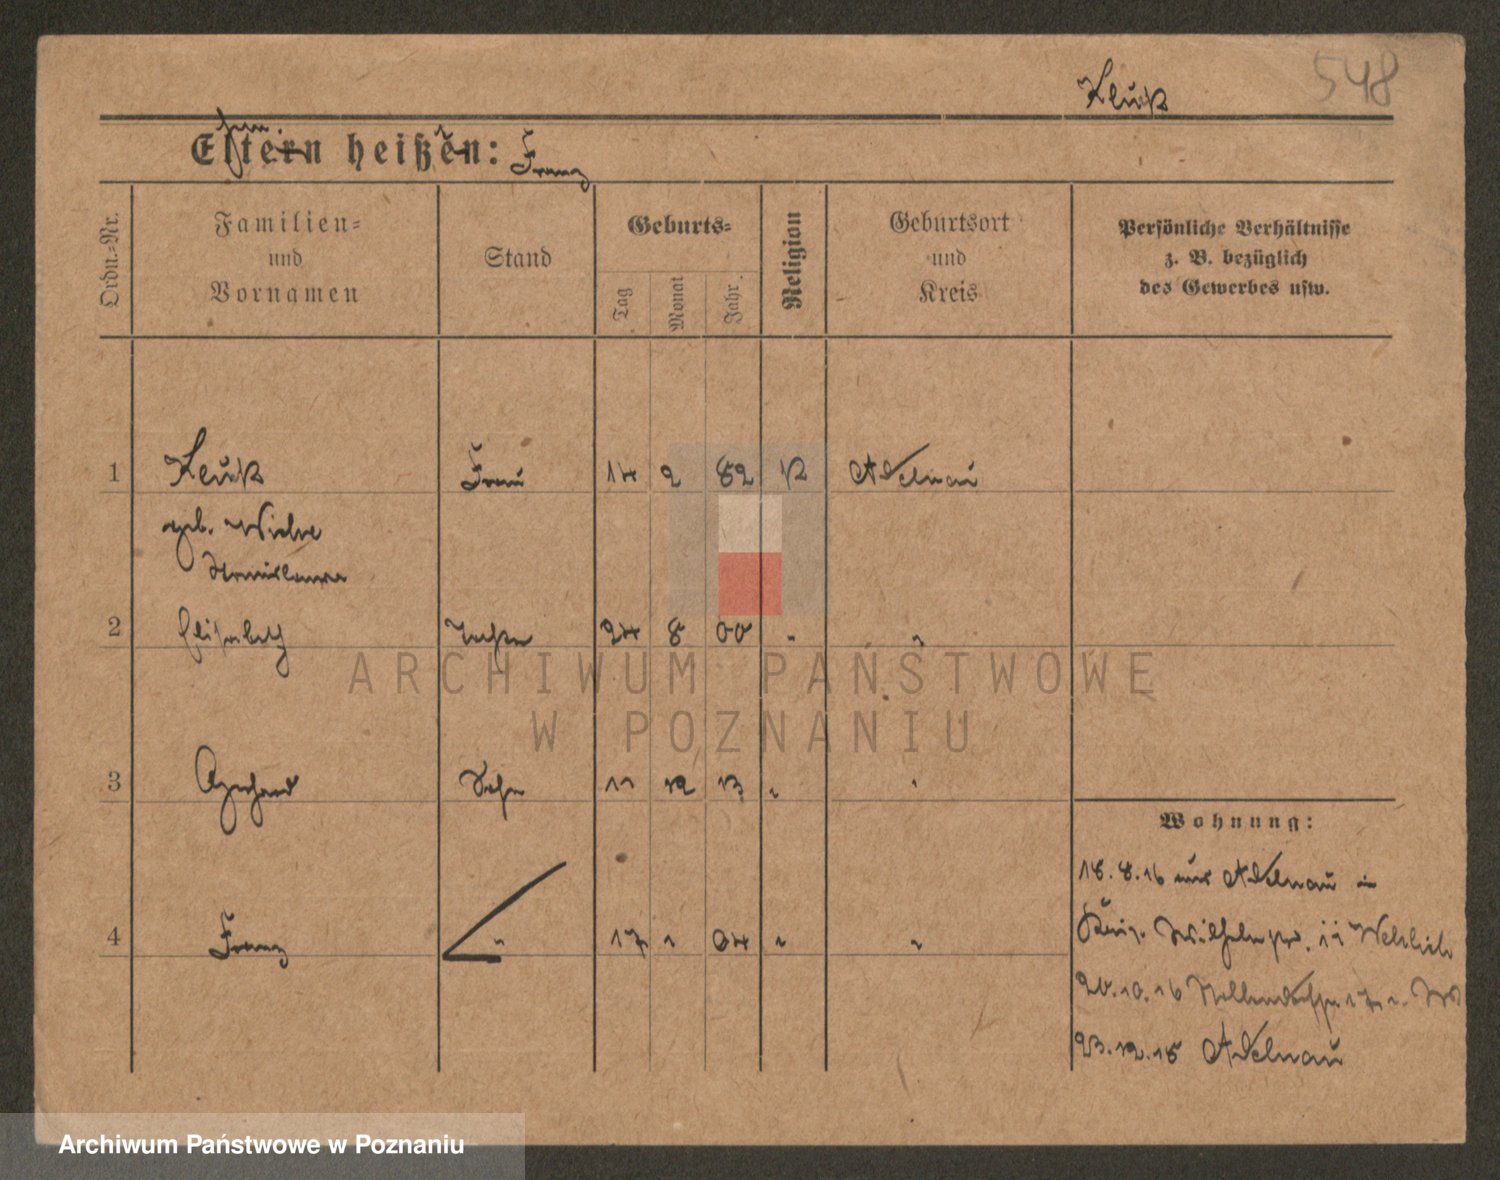 548
Kluß
Eltern heißen: Franz
Ordn.-Nr.
Familien-
und
Vornamen
Stand
Geburts-
Tag
Monat
Jahr.
Religion
Geburtsort
und
Kreis
Persönliche Verhältnisse
z. B. bezüglich
des Gewerbes usw.
1 Kluß Frau 14 2 82 K Adelnau
geb.
Stanislawa
2 Elisabeth Tochter 24 8 00 " "
3 Gerhard Sohn 11 12 13 " "
Wohnung:
18.8.16 aus Adelnau in
4 Franz " 17 1 04 " "
20.10.16
23.12.18 Adelnau
ARCHIWUM PAŃSTWOWE
W POZNANIU
Archiwum Państwowe w Poznaniu